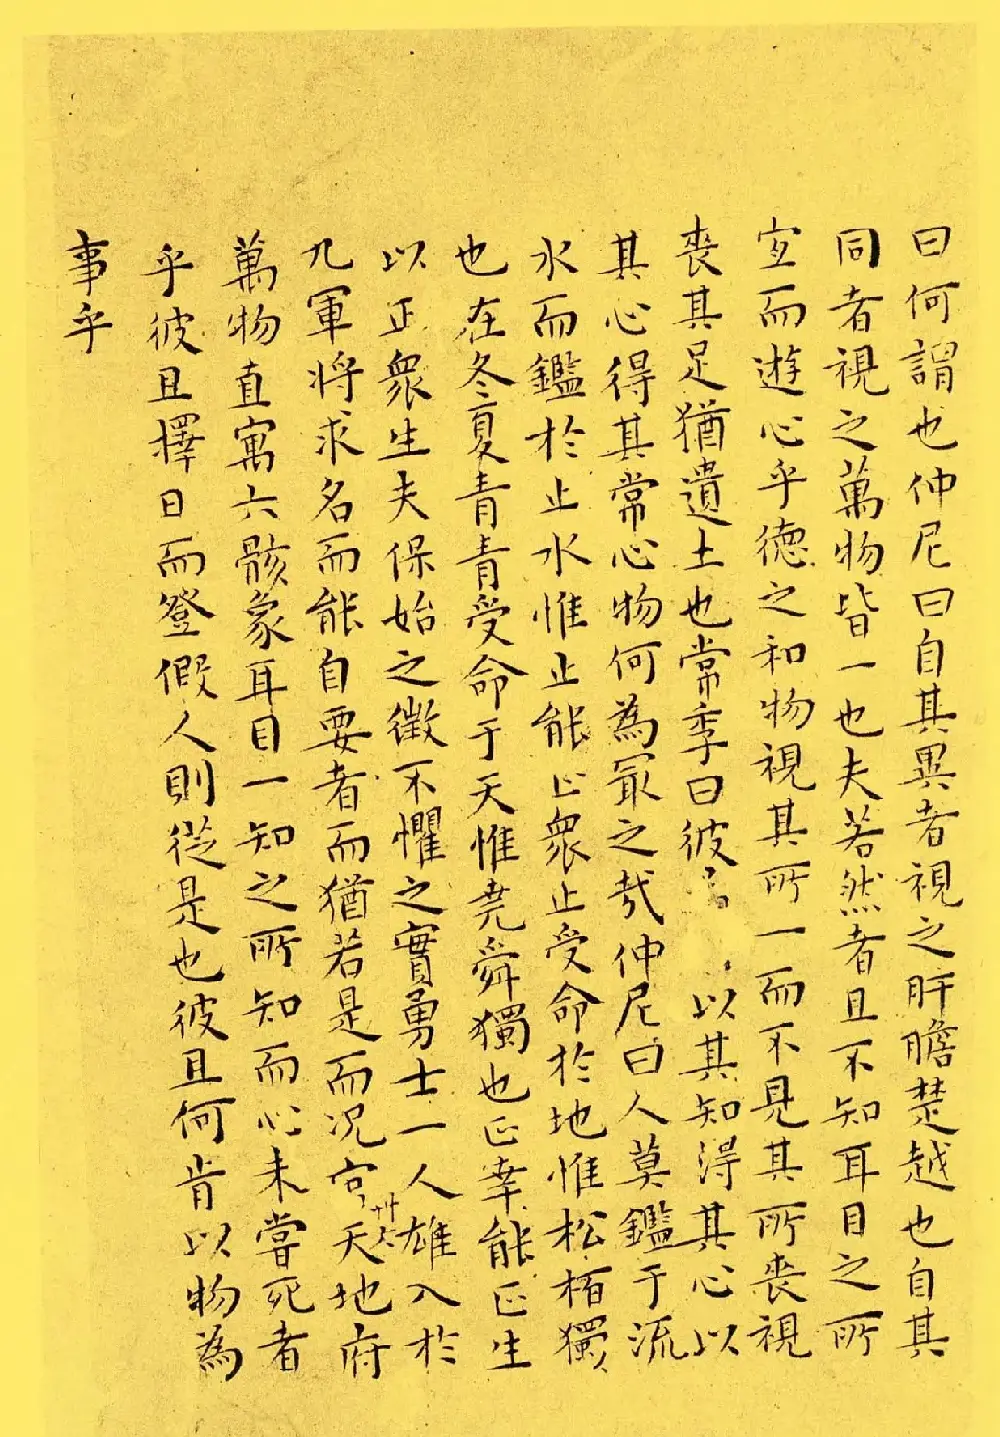 曰何謂也仲尼曰自其異者視之肝膽楚越也自其
同者視之萬物皆一也夫若然者且不知耳目之所
宜而遊心乎德之和物視其所一而不見其所喪視
喪其足猶遺土也常季曰彼以其知得其心以
其心得其常心物何為冣之哉仲尼曰人莫鑑于流
水而鑑於止水惟止能止眾止受命於地惟松栢獨
也在冬夏青青受命于天惟堯舜獨也正幸能正生
以正眾生夫保始之徵不懼之實勇士一人雄入於
九軍將求名而能自要者而猶若是而況官天地府
萬物直寓六骸象耳目一知之所知而心未嘗死者
乎彼且擇日而登假人則從是也彼且何肯以物為
事乎